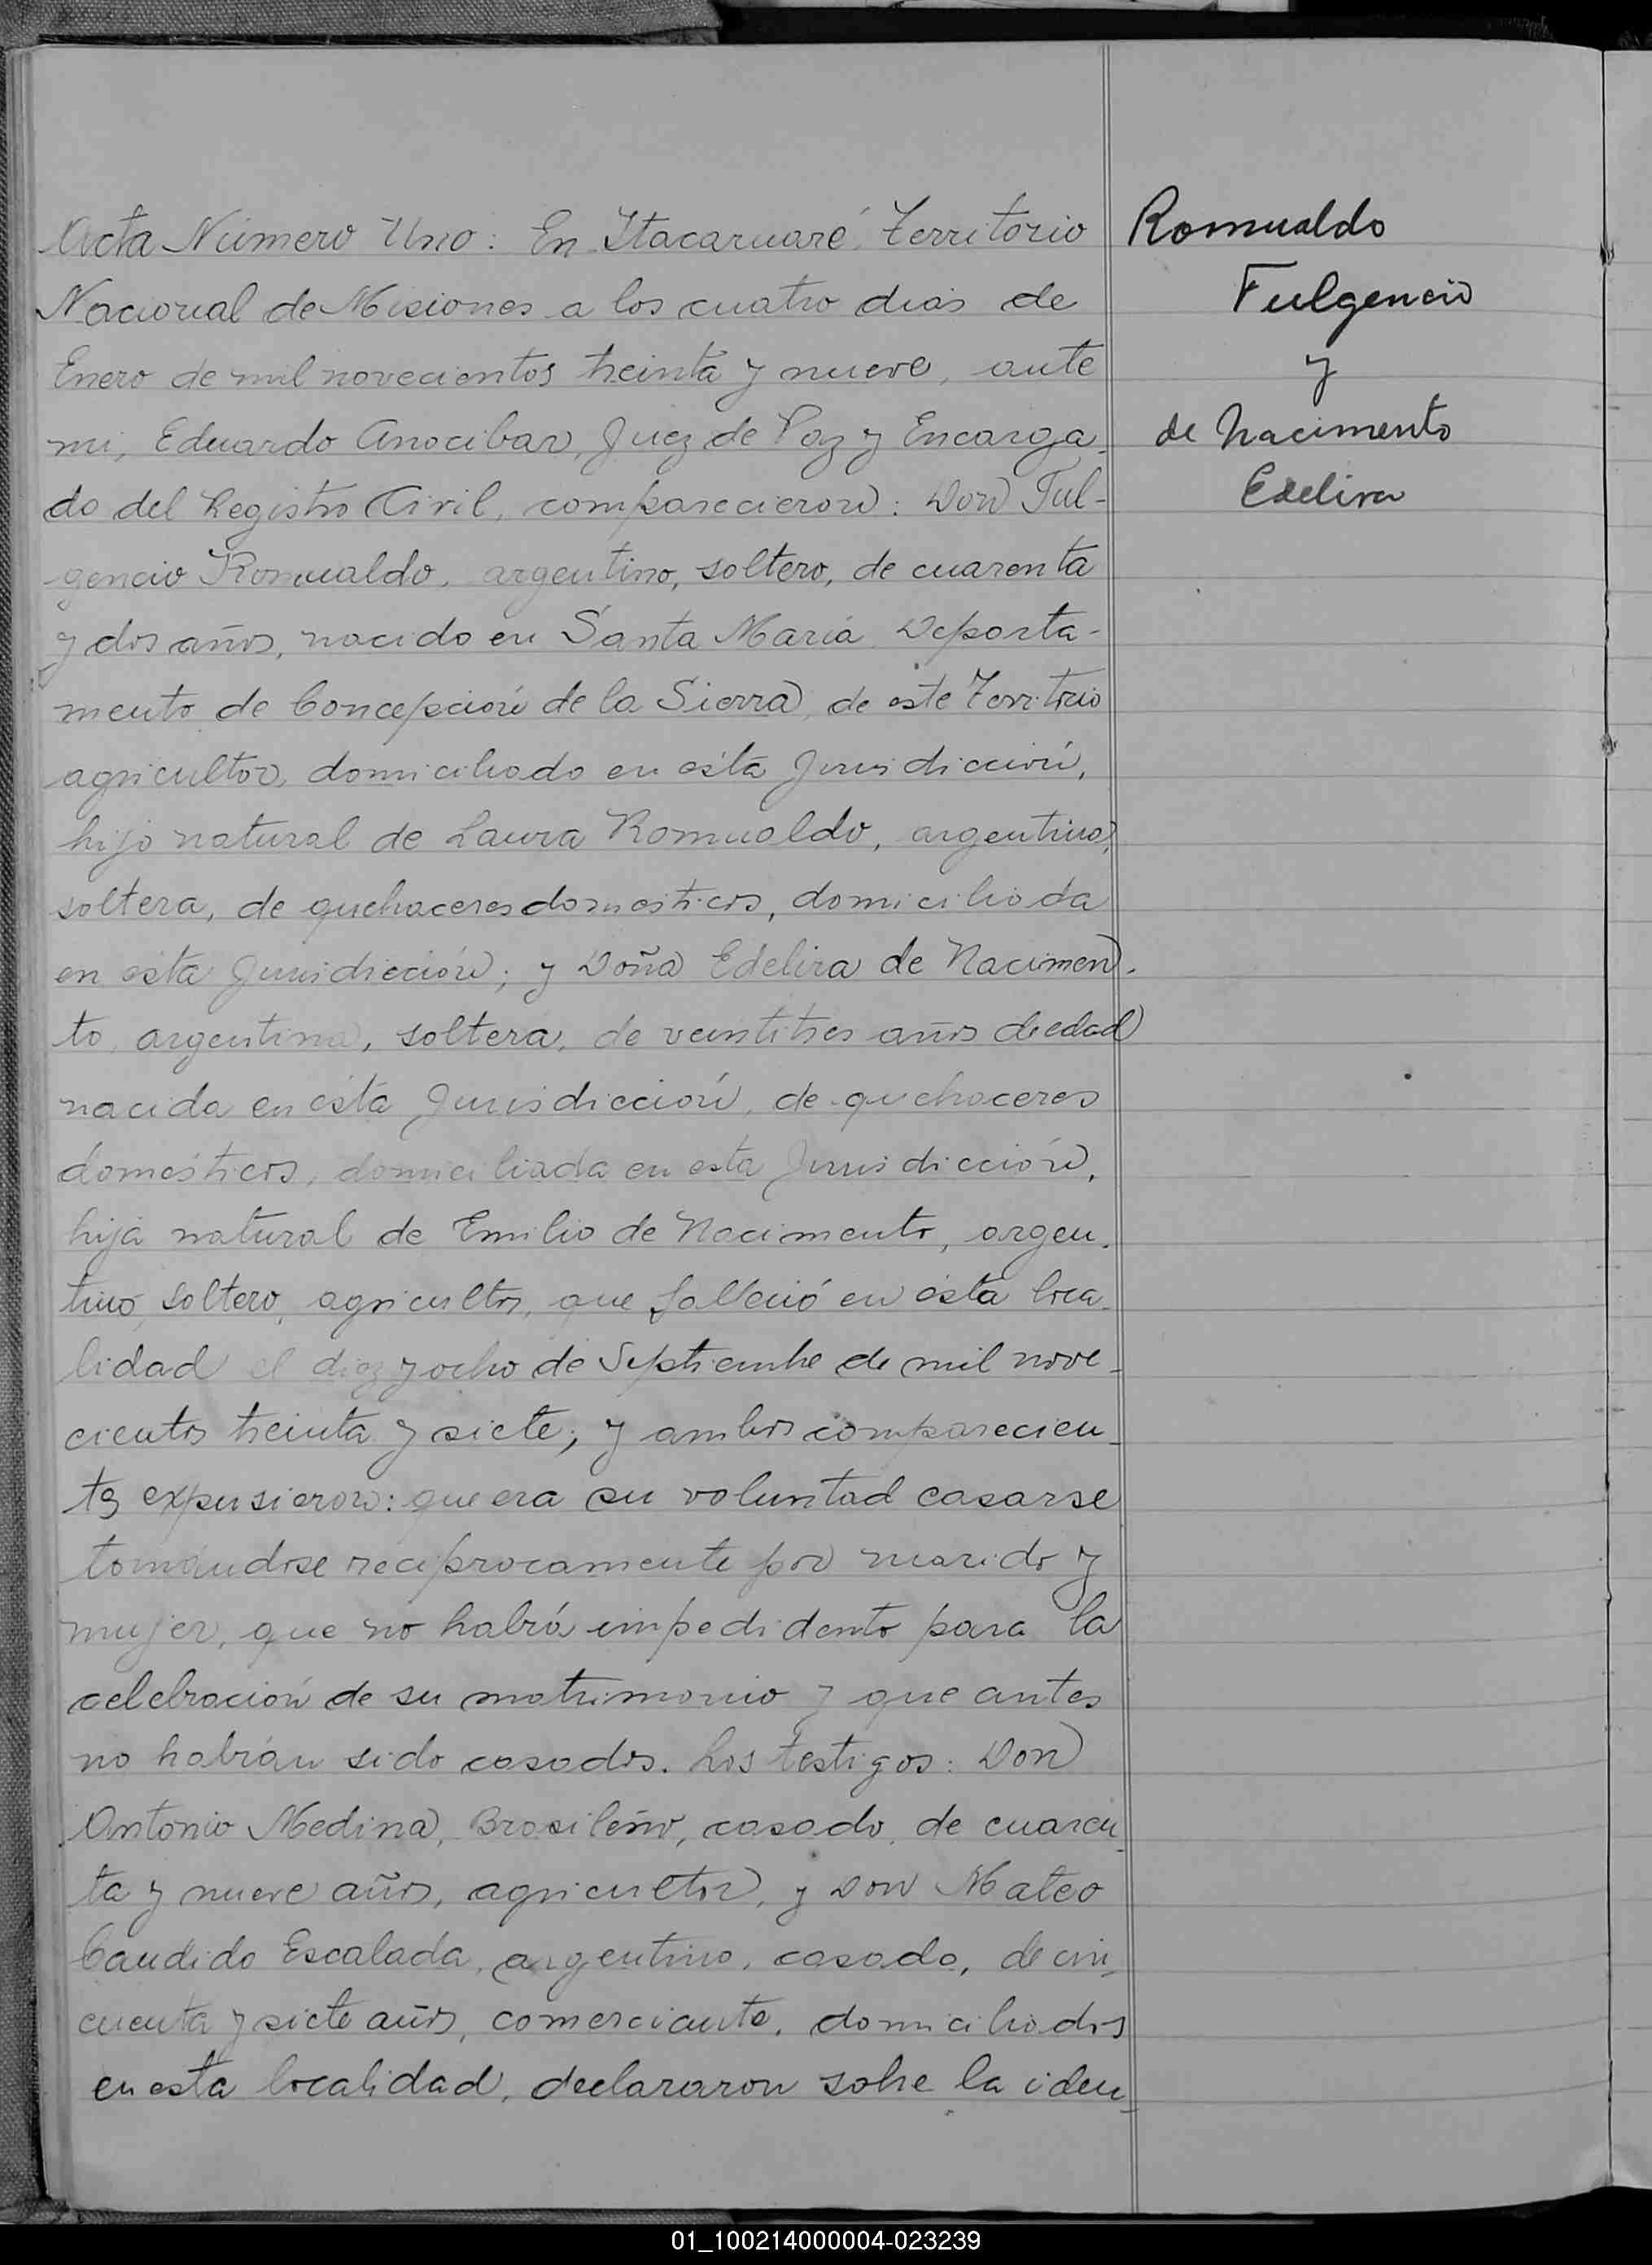 Acta Número Uno: En Itacaruaré, Territorio
Nacional de Misiones a los cuatro dias de
Enero de mil novecientos treinta y nueve, ante
mi, Eduardo Anocibar, Juez de Paz y Encarga-
do del Registro Civil, comparecieron: Don Ful-
gencio Romualdo, argentino, soltero, de cuarenta
y dos años, nacido en Santa María Departa-
mento de Concepción de la Sierra, de este Territrio
agricultor, domiciliado en ésta Jurisdicción,
hijo natural de Laura Romualdo, argentina,
soltera, de quehaceres domésticos, domiciliada
en ésta Jurisdicción; y Doña Edelira de Nacimen-
to, argentina, soltera, de veintitres años de edad
nacida en ésta Jurisdicción, de quehaceres
domésticos, domiciliada en esta Jurisdicción,
hija natural de Emilio de Nacimento, argen-
tino, soltero, agricultor, que falleció en ésta loca-
lidad el diez y ocho de Septiembre de mil nove-
cientos treinta y siete; y ambos comparecien-
tes expusieron: que era su voluntad casarse
tomándose reciprocamente por marido y
mujer, que no habrá impedidento para la
celebración de su matrimonio y que antes
no habían sido casados. Los testigos: Don
Antonio Medina, Brasileño, casado, de cuaren-
ta y nueve años, agricultor, y Don Mateo
Candido Escalada, argentino, casado, de cin-
cuenta y siete años, comerciante, domiciliados
en esta localidad, declararon sobre la iden-
Romualdo
Fulgencio
y
de Nacimento
Edelira
01_100214000004-023239